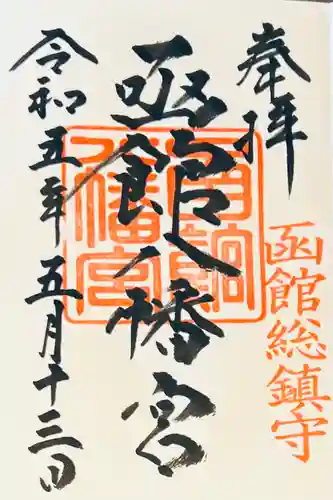 奉拝
函館総鎮守
函館八幡宮
令和五年五月十三日
函館八幡宮